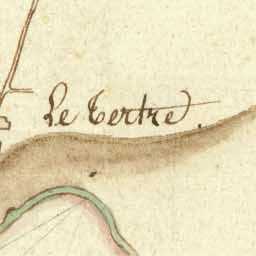 Le Tertre.